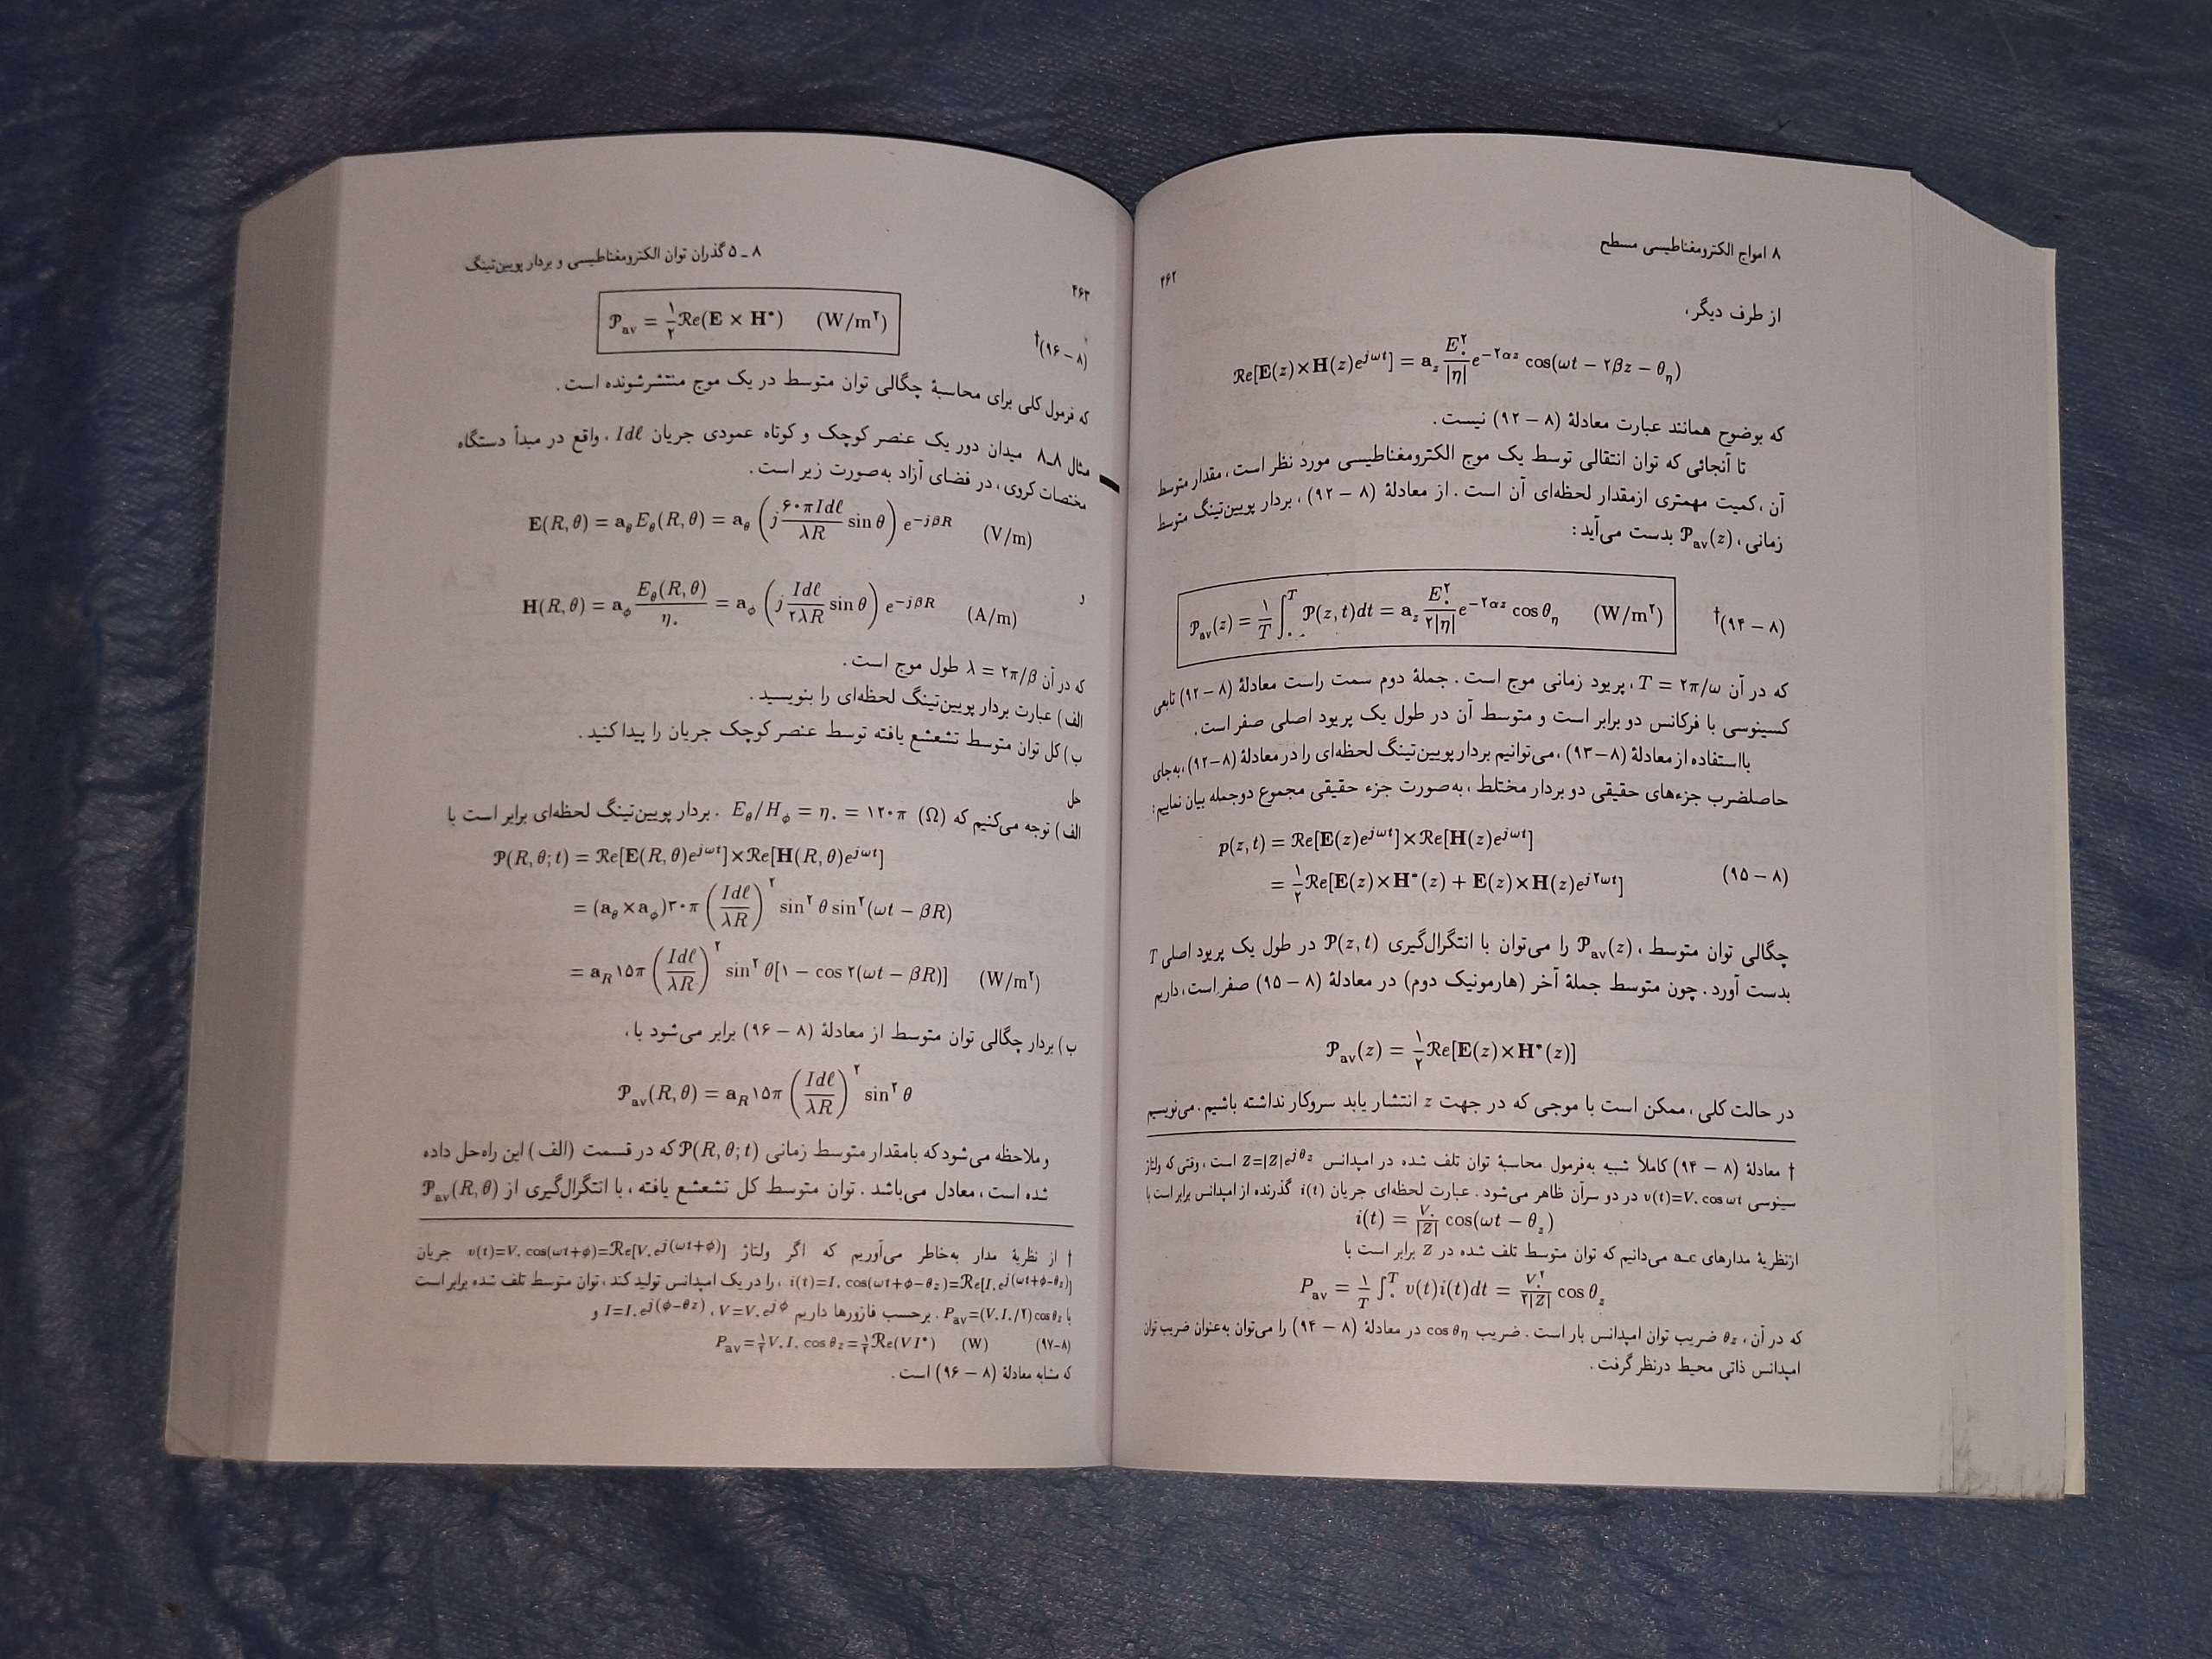 ۸ امواج الکترومغناطیسی مسطح
۴۶۲
از طرف دیگر،
ℛe[E(z)×H(z)e^{jωt}] = a_z (E_۰^۲/|η|) e^{−۲αz} cos(ωt − ۲βz − θ_η)
که بوضوح همانند عبارت معادلهٔ (۸ – ۹۲) نیست.
تا آنجائی که توان انتقالی توسط یک موج الکترومغناطیسی مورد نظر است، مقدار متوسط
آن، کمیت مهمتری ازمقدار لحظه‌ای آن است. از معادلهٔ (۸ – ۹۲)، بردار پویین‌تینگ متوسط
زمانی، 𝒫_av(z) بدست می‌آید:
𝒫_av(z) = (۱/T) ∫_۰^T 𝒫(z, t)dt = a_z (E_۰^۲/۲|η|) e^{−۲αz} cos θ_η (W/m^۲) (۸ – ۹۴)†
که در آن T = ۲π/ω، پریود زمانی موج است. جملهٔ دوم سمت راست معادلهٔ (۸ – ۹۲) تابعی
کسینوسی با فرکانس دو برابر است و متوسط آن در طول یک پریود اصلی صفر است.
بااستفاده از معادلهٔ (۸–۹۳)، می‌توانیم بردار پویین‌تینگ لحظه‌ای را در معادلهٔ (۸–۹۲)، به‌جای
حاصلضرب جزءهای حقیقی دو بردار مختلط، به‌صورت جزء حقیقی مجموع دوجمله بیان نماییم:
𝓅(z, t) = ℛe[E(z)e^{jωt}]×ℛe[H(z)e^{jωt}]
= (۱/۲)ℛe[E(z)×H*(z) + E(z)×H(z)e^{j۲ωt}] (۸ – ۹۵)
چگالی توان متوسط، 𝒫_av(z)، را می‌توان با انتگرال‌گیری 𝒫(z, t) در طول یک پریود اصلی T
بدست آورد. چون متوسط جملهٔ آخر (هارمونیک دوم) در معادلهٔ (۸ – ۹۵) صفر است، داریم
𝒫_av(z) = (۱/۲)ℛe[E(z)×H*(z)]
در حالت کلی، ممکن است با موجی که در جهت z انتشار یابد سروکار نداشته باشیم. می‌نویسیم
† معادلهٔ (۸ – ۹۴) کاملاً شبیه به‌فرمول محاسبهٔ توان تلف شده در امپدانس Z=|Z|e^{jθ_z} است، وقتی که ولتاژ
سینوسی v(t)=V_۰ cos ωt در دو سرآن ظاهر می‌شود. عبارت لحظه‌ای جریان i(t) گذرنده از امپدانس برابر است با
i(t) = (V_۰/|Z|) cos(ωt − θ_z)
ازنظریهٔ مدارهای a-c می‌دانیم که توان متوسط تلف شده در Z برابر است با
P_av = (۱/T) ∫_۰^T v(t)i(t)dt = (V_۰^۲/۲|Z|) cos θ_z
که در آن، θ_z ضریب توان امپدانس بار است. ضریب cos θ_η در معادلهٔ (۸ – ۹۴) را می‌توان به‌عنوان ضریب توان
امپدانس ذاتی محیط درنظر گرفت.
۸ ـ ۵ گذران توان الکترومغناطیسی و بردار پویین‌تینگ
۴۶۳
𝒫_av = (۱/۲)ℛe(E × H*) (W/m^۲) (۸ – ۹۶)†
که فرمول کلی برای محاسبهٔ چگالی توان متوسط در یک موج منتشرشونده است.
مثال ۸ـ۸ میدان دور یک عنصر کوچک و کوتاه عمودی جریان Idℓ، واقع در مبدأ دستگاه
مختصات کروی، در فضای آزاد به‌صورت زیر است.
E(R, θ) = a_θ E_θ(R, θ) = a_θ (j (۶۰πIdℓ/λR) sin θ) e^{−jβR} (V/m)
و
H(R, θ) = a_φ E_θ(R, θ)/η_۰ = a_φ (j (Idℓ/۲λR) sin θ) e^{−jβR} (A/m)
که در آن λ = ۲π/β طول موج است.
الف) عبارت بردار پویین‌تینگ لحظه‌ای را بنویسید.
ب) کل توان متوسط تشعشع یافته توسط عنصر کوچک جریان را پیدا کنید.
حل
الف) توجه می‌کنیم که E_θ/H_φ = η_۰ = ۱۲۰π (Ω). بردار پویین‌تینگ لحظه‌ای برابر است با
𝒫(R, θ; t) = ℛe[E(R, θ)e^{jωt}]×ℛe[H(R, θ)e^{jωt}]
= (a_θ×a_φ)۳۰π (Idℓ/λR)^۲ sin^۲ θ sin^۲(ωt − βR)
= a_R ۱۵π (Idℓ/λR)^۲ sin^۲ θ[۱ − cos ۲(ωt − βR)] (W/m^۲)
ب) بردار چگالی توان متوسط از معادلهٔ (۸ – ۹۶) برابر می‌شود با،
𝒫_av(R, θ) = a_R ۱۵π (Idℓ/λR)^۲ sin^۲ θ
و ملاحظه می‌شود که بامقدار متوسط زمانی 𝒫(R, θ; t) که در قسمت (الف) این راه‌حل داده
شده است، معادل می‌باشد. توان متوسط کل تشعشع یافته، با انتگرال‌گیری از 𝒫_av(R, θ)
† از نظریهٔ مدار به‌خاطر می‌آوریم که اگر ولتاژ v(t)=V_۰ cos(ωt+φ)=ℛe[V_۰e^{j(ωt+φ)}] جریان
i(t)=I_۰ cos(ωt+φ−θ_z)=ℛe[I_۰e^{j(ωt+φ−θ_z)}]، را در یک امپدانس تولید کند، توان متوسط تلف شده برابر است
با P_av=(V_۰I_۰/۲) cos θ_z. برحسب فازورها داریم V=V_۰e^{jφ}، I=I_۰e^{j(φ−θ_z)} و
P_av=(۱/۲)V_۰I_۰ cos θ_z=(۱/۲)ℛe(VI*) (W) (۸–۹۷)
که مشابه معادلهٔ (۸ – ۹۶) است.